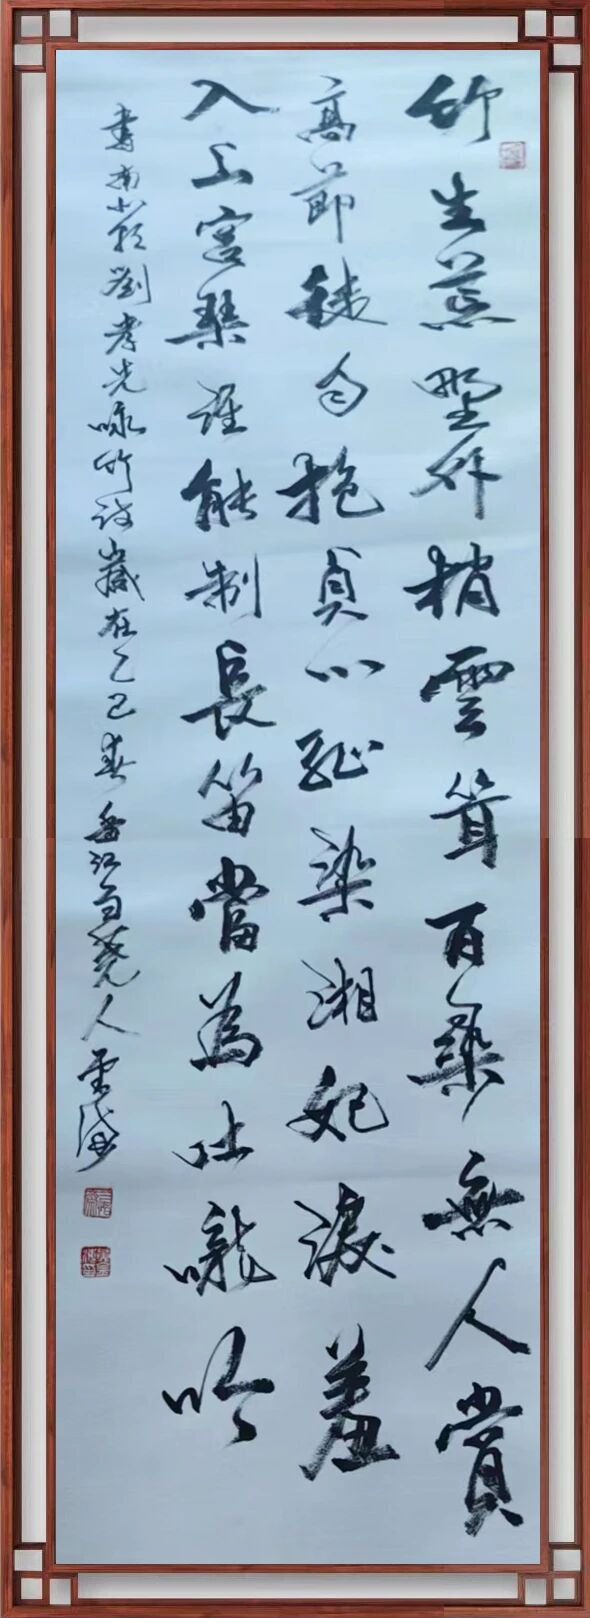 竹生荒野外梢雲耸百尋無人賞
高節徒自抱貞心恥染湘妃淚羞
入上宮琴誰能制長笛當為吐嚨吟
書南北朝劉孝先咏竹詩歲在乙巳春江人雲